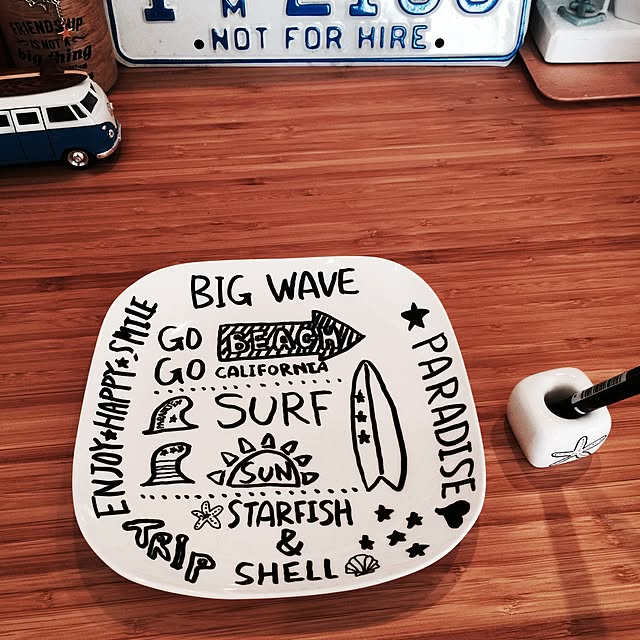 FRIENDSHIP
IS NOT A
big thing
NOT FOR HIRE
BIG WAVE
GO BEACH
GO CALIFORNIA
SURF
SUN
STARFISH
&
SHELL
ENJOY HAPPY SMILE
TRIP
PARADISE